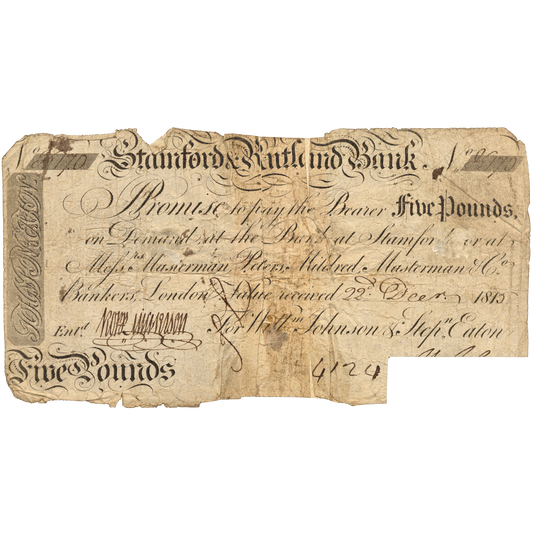 Stamford & Rutland Bank.
I Promise to pay the Bearer Five Pounds,
on Demand at the Bank at Stamford or at
Mess.rs Masterman, Peters, Mildred, Masterman & Co
Bankers, London. Value received 22.d Decr. 1813
Ent.d For Will.m Johnson & Step.n Eaton
Five Pounds
4124